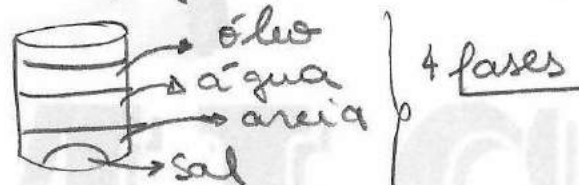 óleo
água
areia
sal
4 fases